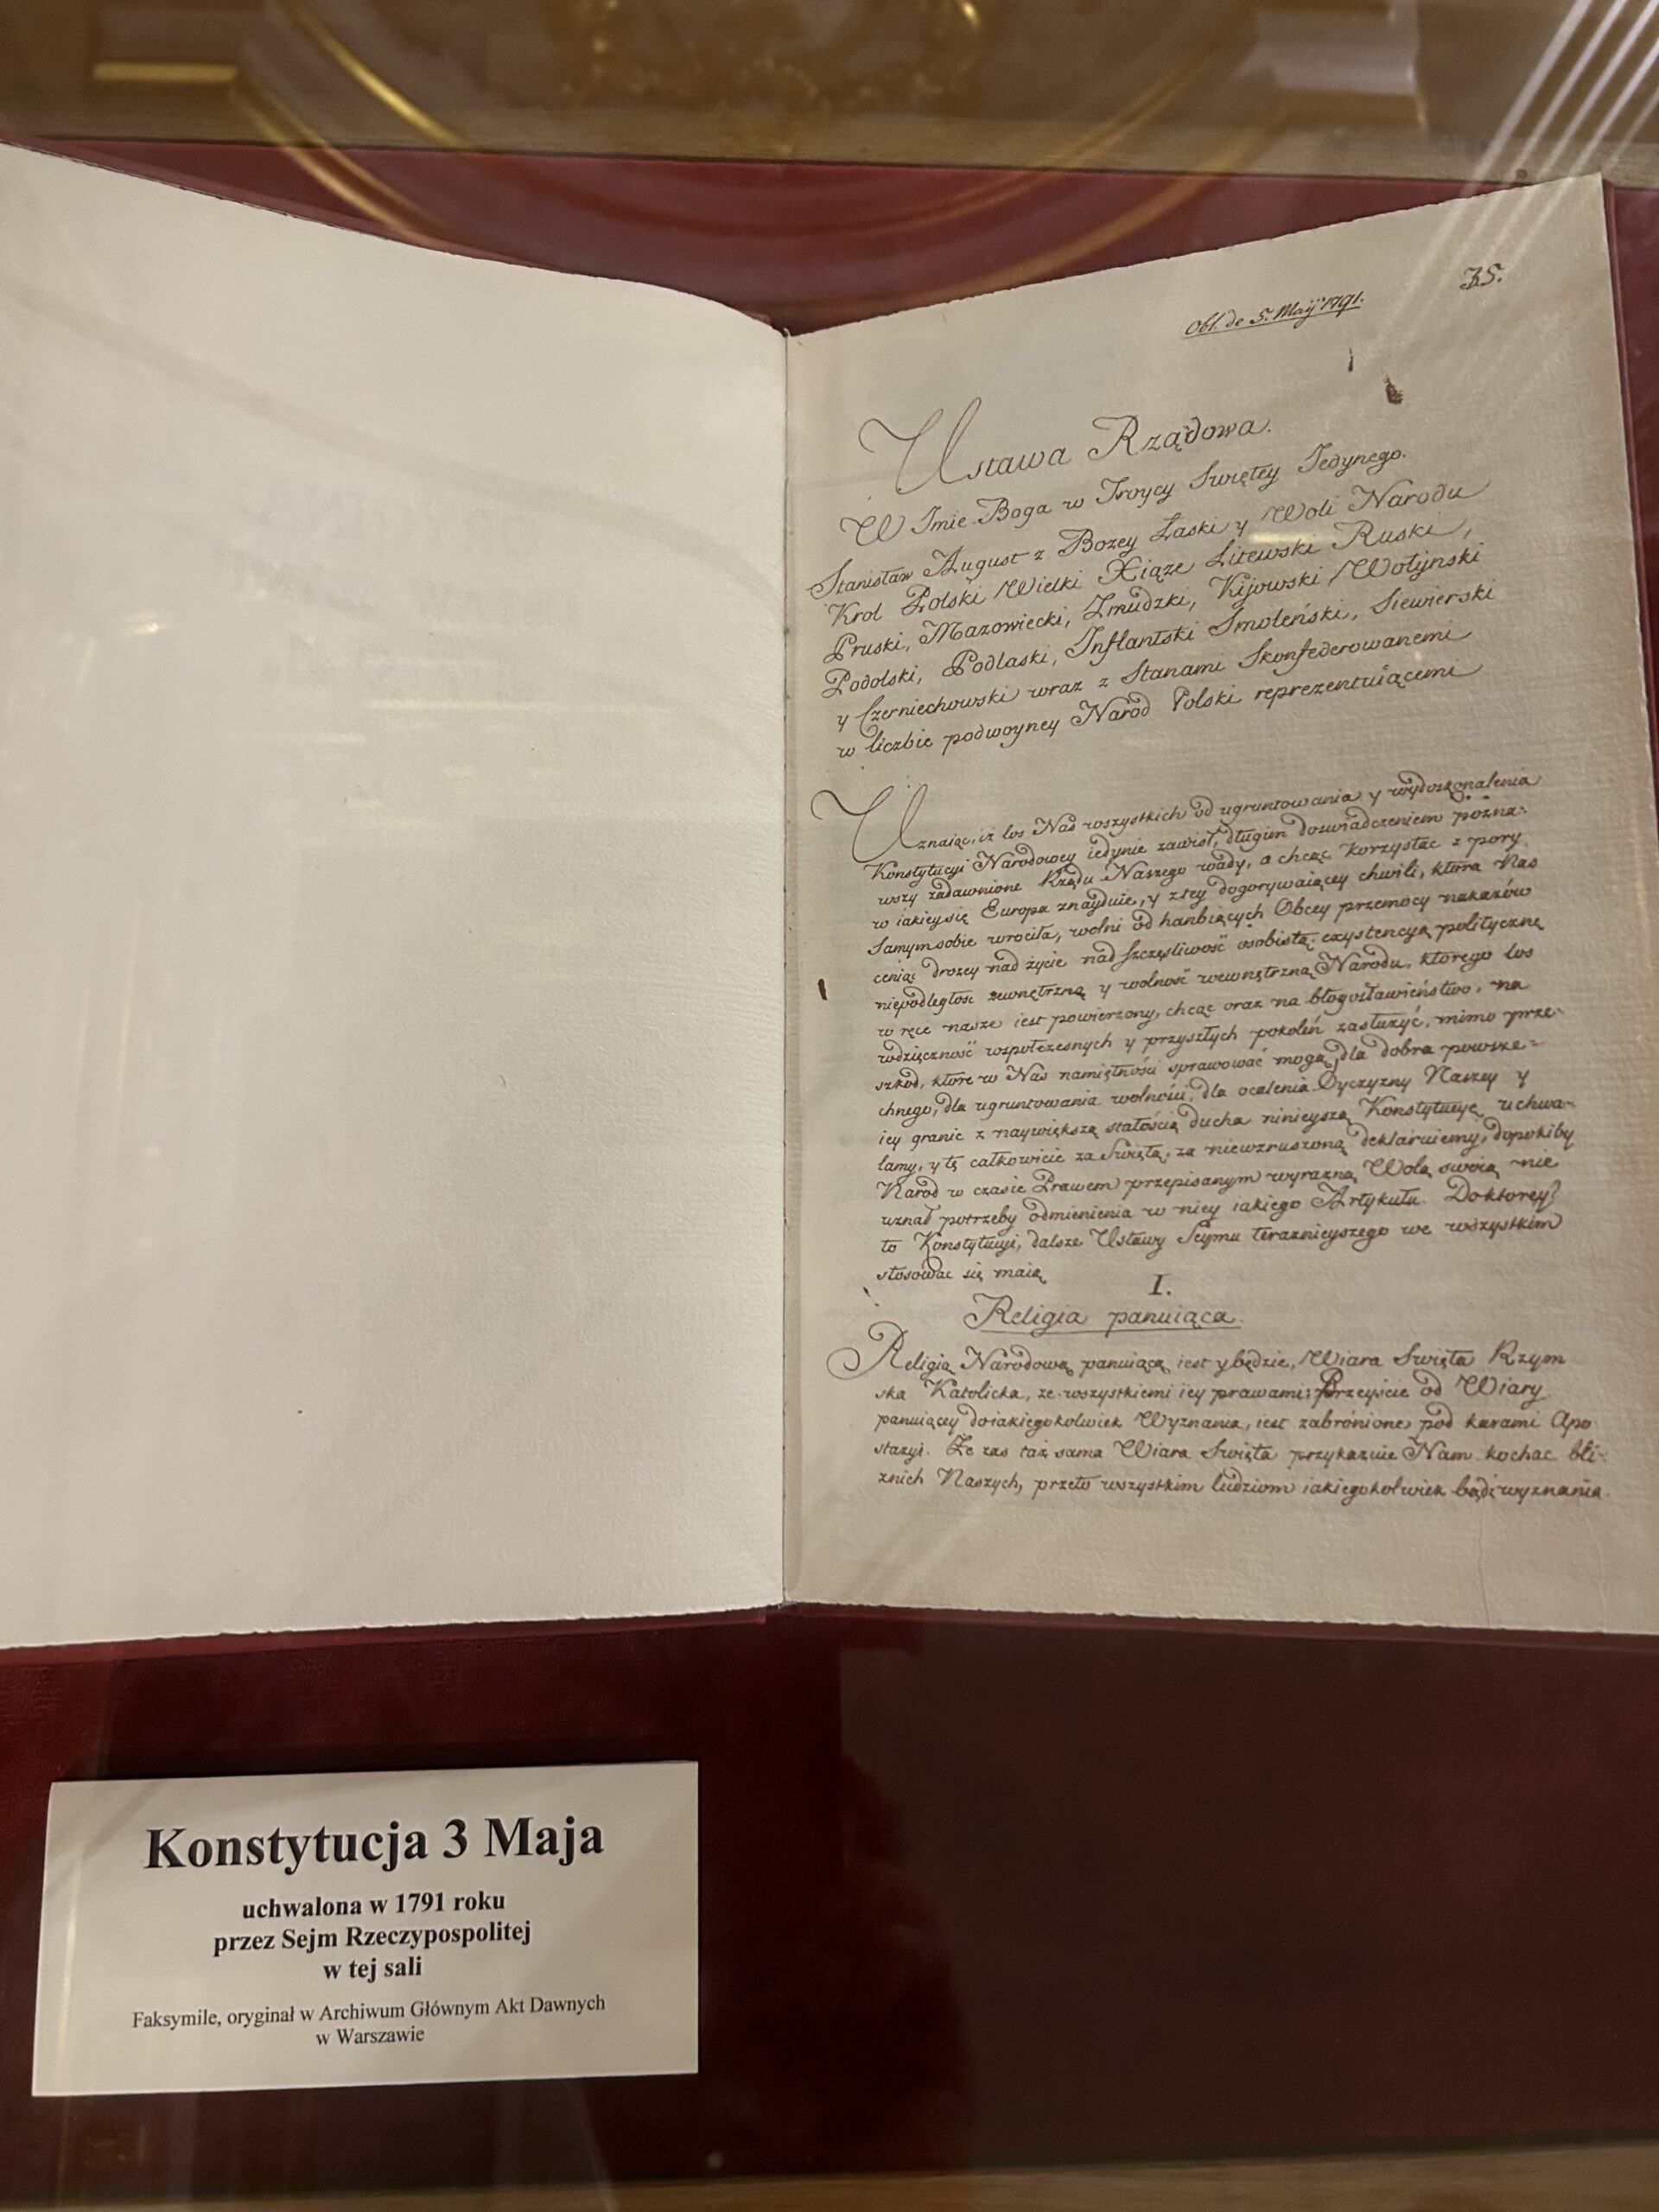 35.
Obl. de 5. Maÿ 1791.
Ustawa Rządowa.
W Imie Boga w Troycy Swiętey Jedynego.
Stanisław August z Bozey Łaski y Woli Narodu
Krol Polski Wielki Xiąze Litewski Ruski,
Pruski, Mazowiecki, Zmudzki, Kijowski Wołyński
Podolski, Podlaski, Inflantski Smoleński, Siewierski
y Czerniechowski wraz z Stanami Skonfederowanemi
w liczbie podwoyney Narod Polski reprezentuiącemi
Uznaiąc, iż los Nas wszystkich od ugruntowania y wydoskonalenia
Konstytucyi Narodowey iedynie zawisł, długim doswiadczeniem pozna-
wszy zadawnione Rządu Naszego wady, a chcąc korzystac z pory
w iakiey się Europa znayduie, y z tey dogorywaiącey chwili, ktora Nas
samym sobie wrociła, wolni od hanbiących Obcey przemocy nakazów
ceniąc drozey nad życie nad szczęsliwosć osobistą, exystencyą polityczną
niepodległosc zewnętrzną y wolność wewnętrzną Narodu, ktorego los
w ręce nasze iest powierzony, chcąc oraz na błogosławieństwo, na
wdzięczność wspołczesnych y przyszłych pokoleń zasłużyć, mimo prze-
szkod, ktore w Nas namiętności sprawować mogą, dla dobra powsze-
chnego, dla ugruntowania wolności, dla ocalenia Oyczyzny Naszey y
iey granic z naywiększą stałością ducha ninieyszą Konstytucyę uchwa-
lamy, y tę całkowicie za Swiętą, za niewzruszoną deklaruiemy, dopokiby
Narod w czasie Prawem przepisanym wyrazną Wolą swoią nie
uznał potrzeby odmienienia w niey iakiego Artykułu. Do ktorey
to Konstytucyi, dalsze Ustawy Seymu teraznieyszego we wszystkim
stosować się maią
I.
Religia panuiąca.
Religią Narodową panuiącą iest y będzie, Wiara Swięta Rzym
ska Katolicka, ze wszystkiemi iey prawami; Przeyście od Wiary
panuiącey do iakiegokolwiek Wyznania, iest zabronione pod karami Apo
stazyi. Ze zas taż sama Wiara Swięta przykazuie Nam kochac bli-
znich Naszych, przeto wszystkim ludziom iakiegokolwiek bądź wyznania
Konstytucja 3 Maja
uchwalona w 1791 roku
przez Sejm Rzeczypospolitej
w tej sali
Faksymile, oryginał w Archiwum Głównym Akt Dawnych
w Warszawie